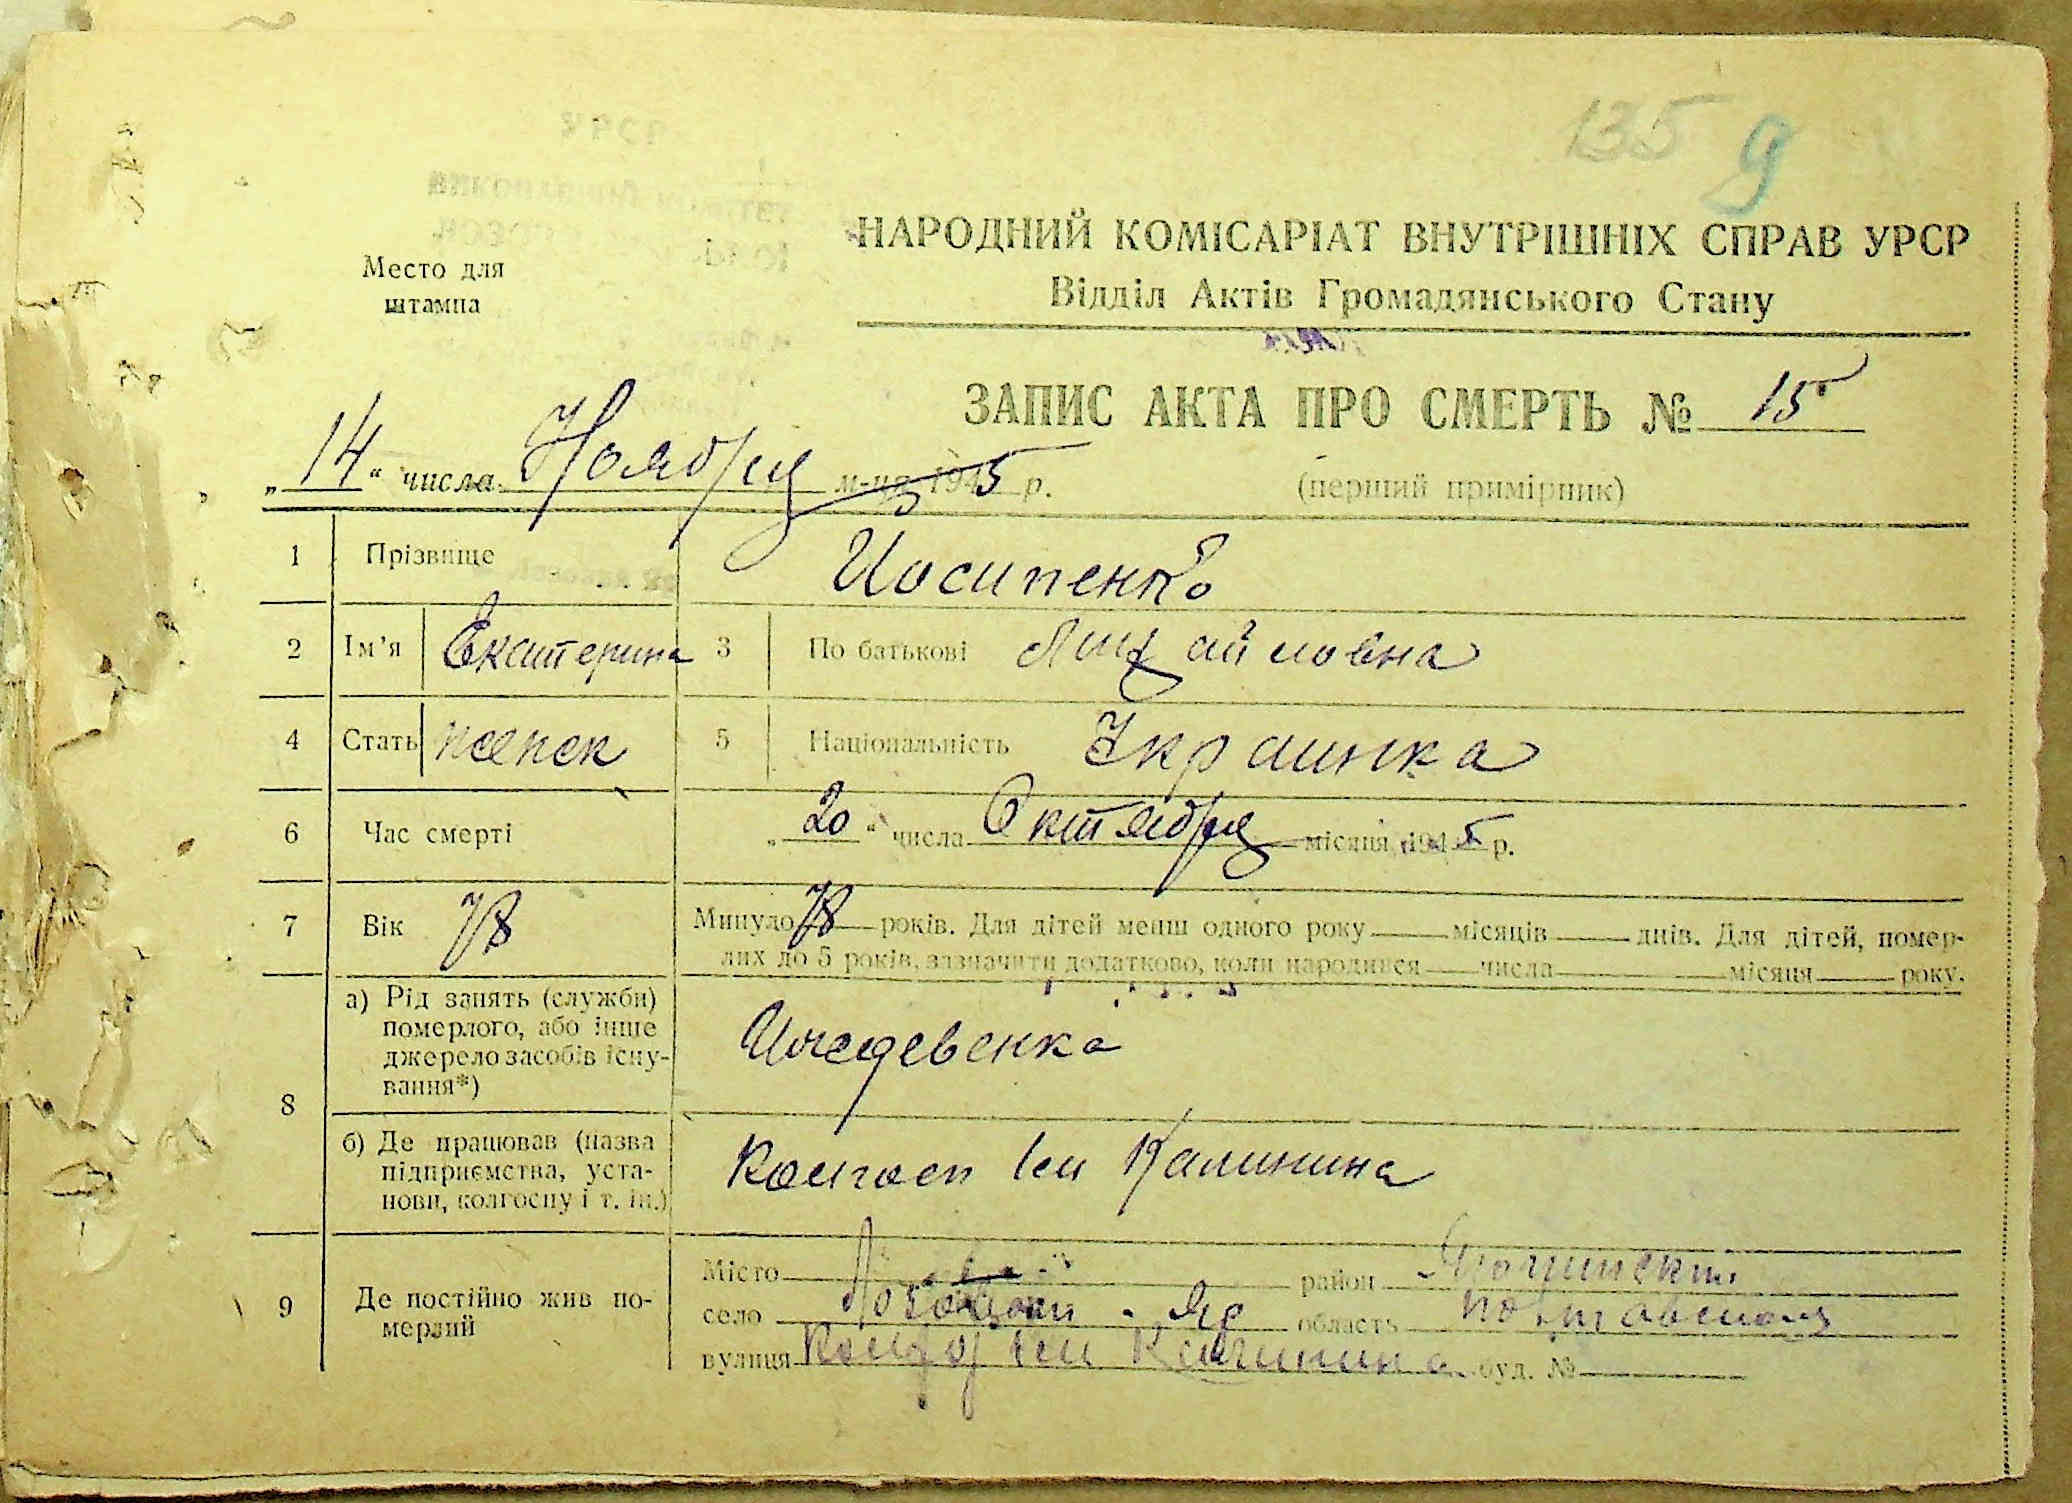 135 9
Место для
штампа
НАРОДНИЙ КОМІСАРІАТ ВНУТРІШНІХ СПРАВ УРСР
Відділ Актів Громадянського Стану
ЗАПИС АКТА ПРО СМЕРТЬ № 15
„14“ числа Ноября м-ця 1945 р.
(перший примірник)
1 Прізвище Иосипенко
2 Ім'я Екатерина 3 По батькові Михайловна
4 Стать женск 5 Національність Украинка
6 Час смерті „20“ числа Октября місяця 1945 р.
7 Вік 78 Минуло 78 років. Для дітей менш одного року місяців днів. Для дітей, помер-
лих до 5 років, зазначити додатково, коли народився числа місяця року.
8 а) Рід занять (служби)
померлого, або інше
джерело засобів існу-
вання*)
Иждевенка
б) Де працював (назва
підприємства, уста-
нови, колгоспу і т. ін.)
Колгосп им Калинина
9 Де постійно жив по-
мерлий
Місто район
село Яр область Полтавская
вулиця им Калинина буд. №